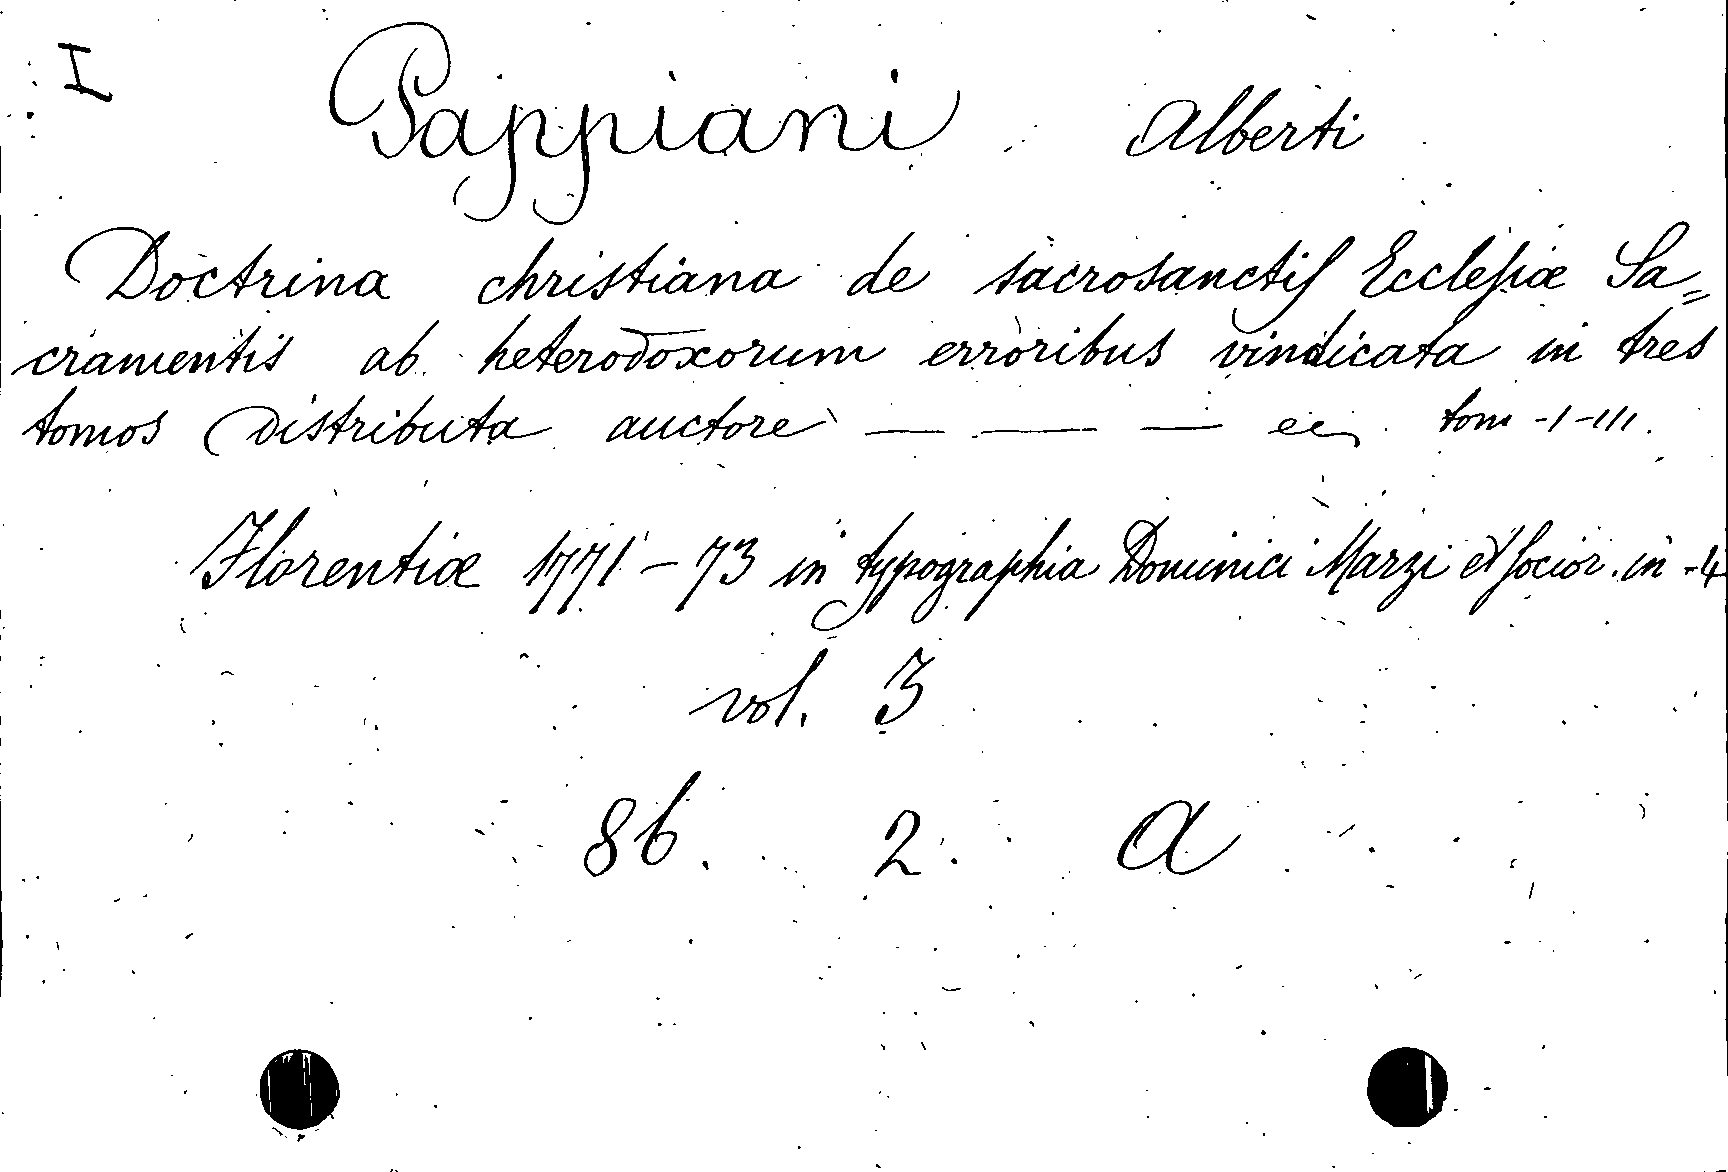 I Pappiani Alberti
Doctrina christiana de sacrosanctis Ecclesiæ Sa=
cramentis ab heterodoxorum erroribus vindicata in tres
tomos distributa auctore — — — tom -I-III.
Florentiæ 1771-73 in typographia Dominici Marzi et socior. in -4
vol. 3
86. 2. a